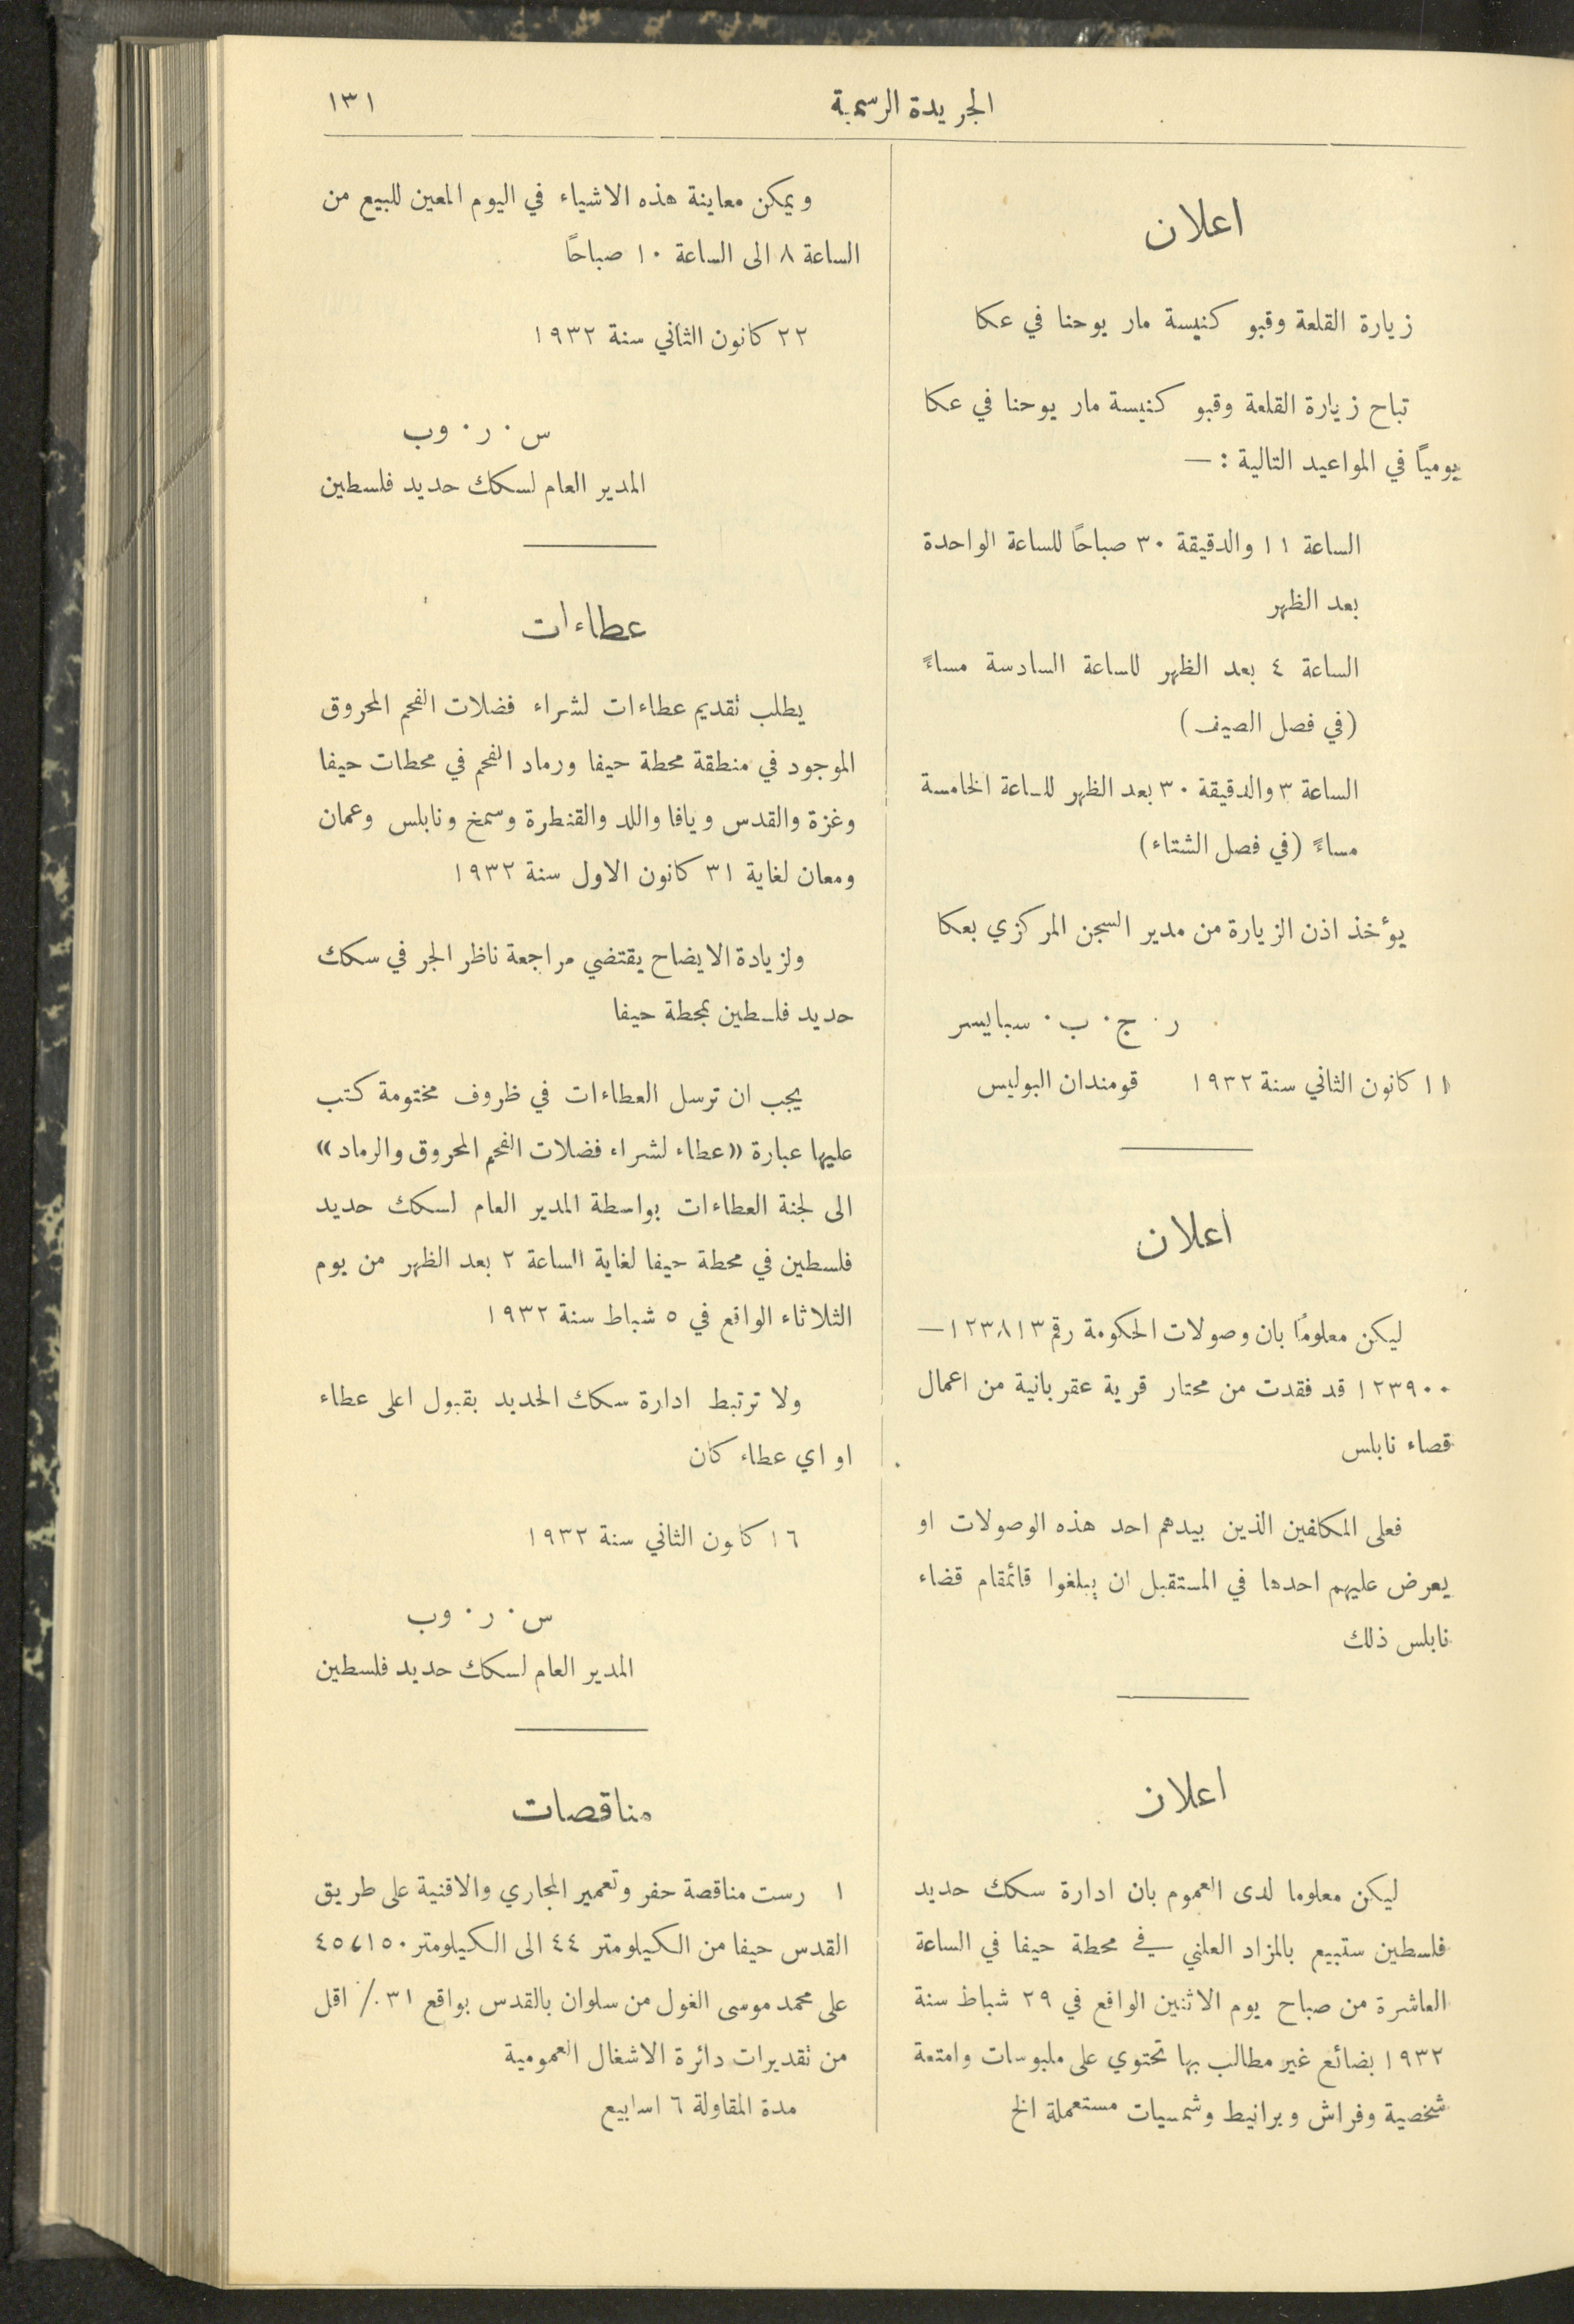 الجريدة الرسمية
١٣١
اعلان
زيارة القلعة وقبو كنيسة مار يوحنا في عكا
تباح زيارة القلعة وقبو كنيسة مار يوحنا في عكا
يومياً في المواعيد التالية : —
الساعة ١١ والدقيقة ٣٠ صباحاً للساعة الواحدة
بعد الظهر
الساعة ٤ بعد الظهر للساعة السادسة مساءً
(في فصل الصيف)
الساعة ٣ والدقيقة ٣٠ بعد الظهر للساعة الخامسة
مساءً (في فصل الشتاء)
يؤخذ اذن الزيارة من مدير السجن المركزي بعكا
ر٠ ج٠ ب٠ سبايسر
١١ كانون الثاني سنة ١٩٣٢ قومندان البوليس
اعلان
ليكن معلوماً بان وصولات الحكومة رقم ١٢٣٨١٣ —
١٢٣٩٠٠ قد فقدت من مختار قرية عقربانية من اعمال
قضاء نابلس
فعلى المكلفين الذين بيدهم احد هذه الوصولات او
يعرض عليهم احدها في المستقبل ان يبلغوا قائمقام قضاء
نابلس ذلك
اعلان
ليكن معلوما لدى العموم بان ادارة سكك حديد
فلسطين ستبيع بالمزاد العلني في محطة حيفا في الساعة
العاشرة من صباح يوم الاثنين الواقع في ٢٩ شباط سنة
١٩٣٢ بضائع غير مطالب بها تحتوي على ملبوسات وامتعة
شخصية وفراش وبرانيط وشمسيات مستعملة الخ
ويمكن معاينة هذه الاشياء في اليوم المعين للبيع من
الساعة ٨ الى الساعة ١٠ صباحاً
٢٢ كانون الثاني سنة ١٩٣٢
س٠ ر٠ وب
المدير العام لسكك حديد فلسطين
عطاءات
يطلب تقديم عطاءات لشراء فضلات الفحم المحروق
الموجود في منطقة محطة حيفا ورماد الفحم في محطات حيفا
وغزة والقدس ويافا واللد والقنطرة وسمخ ونابلس وعمان
ومعان لغاية ٣١ كانون الاول سنة ١٩٣٢
ولزيادة الايضاح يقتضي مراجعة ناظر الجر في سكك
حديد فلسطين بمحطة حيفا
يجب ان ترسل العطاءات في ظروف مختومة كتب
عليها عبارة «عطاء لشراء فضلات الفحم المحروق والرماد»
الى لجنة العطاءات بواسطة المدير العام لسكك حديد
فلسطين في محطة حيفا لغاية الساعة ٢ بعد الظهر من يوم
الثلاثاء الواقع في ٥ شباط سنة ١٩٣٢
ولا ترتبط ادارة سكك الحديد بقبول اعلى عطاء
او اي عطاء كان
١٦ كانون الثاني سنة ١٩٣٢
س٠ ر٠ وب
المدير العام لسكك حديد فلسطين
مناقصات
١ رست مناقصة حفر وتعمير المجاري والاقنية على طريق
القدس حيفا من الكيلومتر ٤٤ الى الكيلومتر ٤٥،١٥٠
على محمد موسى الغول من سلوان بالقدس بواقع ٣١٪ اقل
من تقديرات دائرة الاشغال العمومية
مدة المقاولة ٦ اسابيع